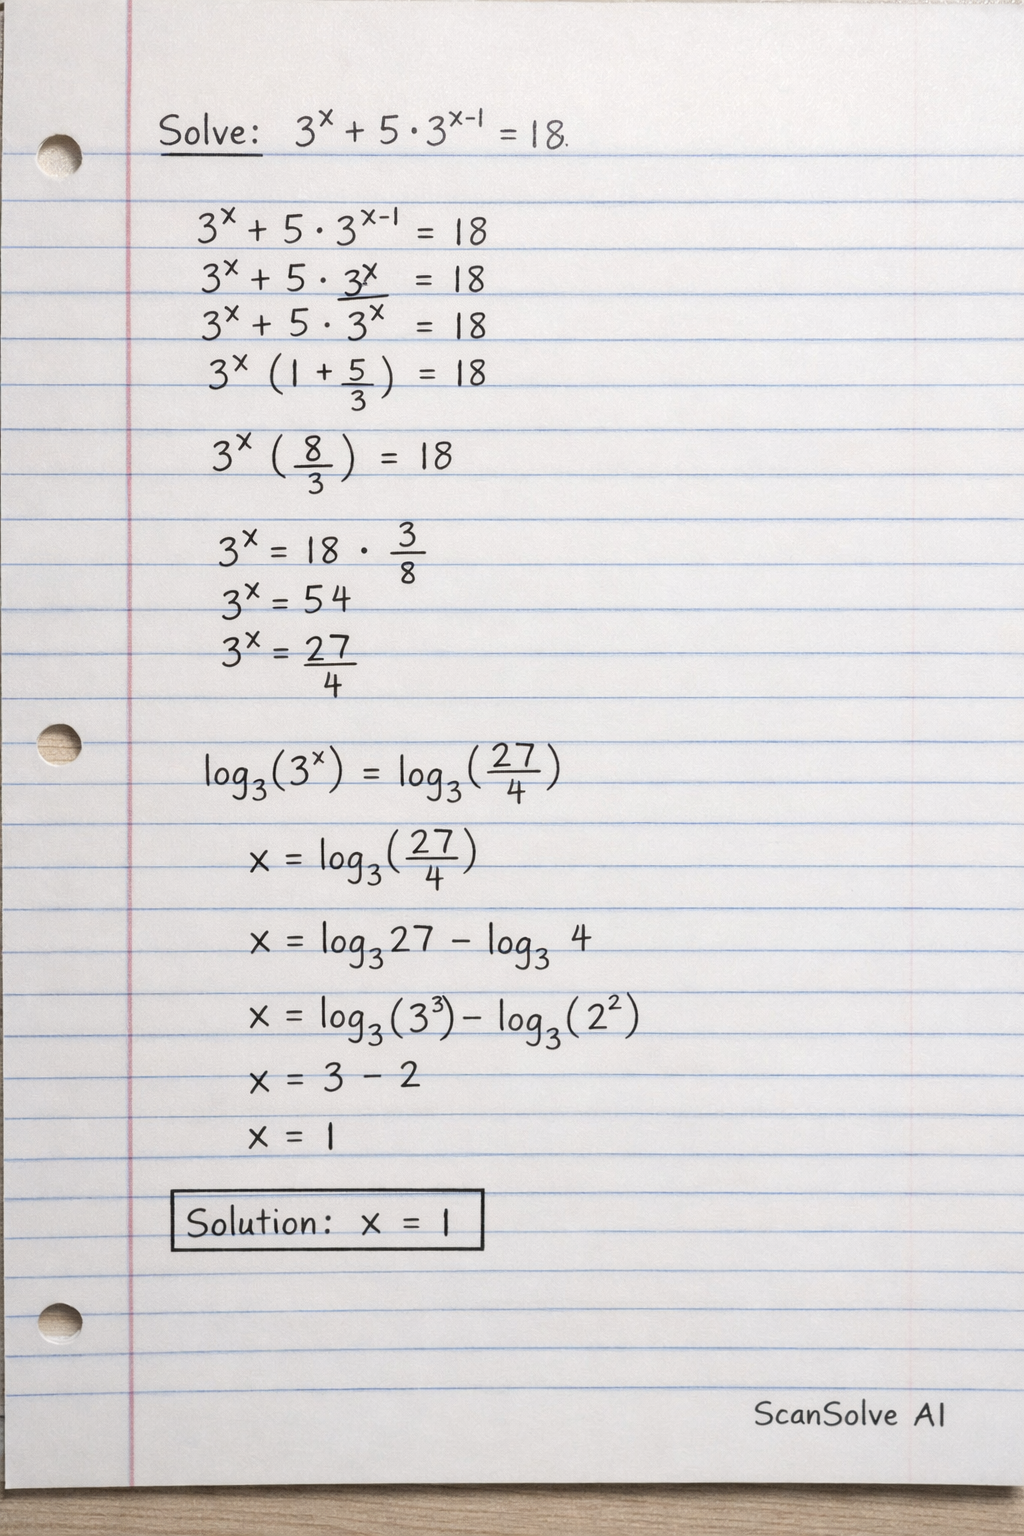 Solve: 3ˣ + 5 · 3ˣ⁻¹ = 18.
3ˣ + 5 · 3ˣ⁻¹ = 18
3ˣ + 5 · 3ˣ = 18
3ˣ + 5 · 3ˣ = 18
3ˣ (1 + 5/3) = 18
3ˣ (8/3) = 18
3ˣ = 18 · 3/8
3ˣ = 54
3ˣ = 27/4
log₃(3ˣ) = log₃(27/4)
x = log₃(27/4)
x = log₃27 − log₃ 4
x = log₃(3³) − log₃(2²)
x = 3 − 2
x = 1
Solution: x = 1
ScanSolve AI